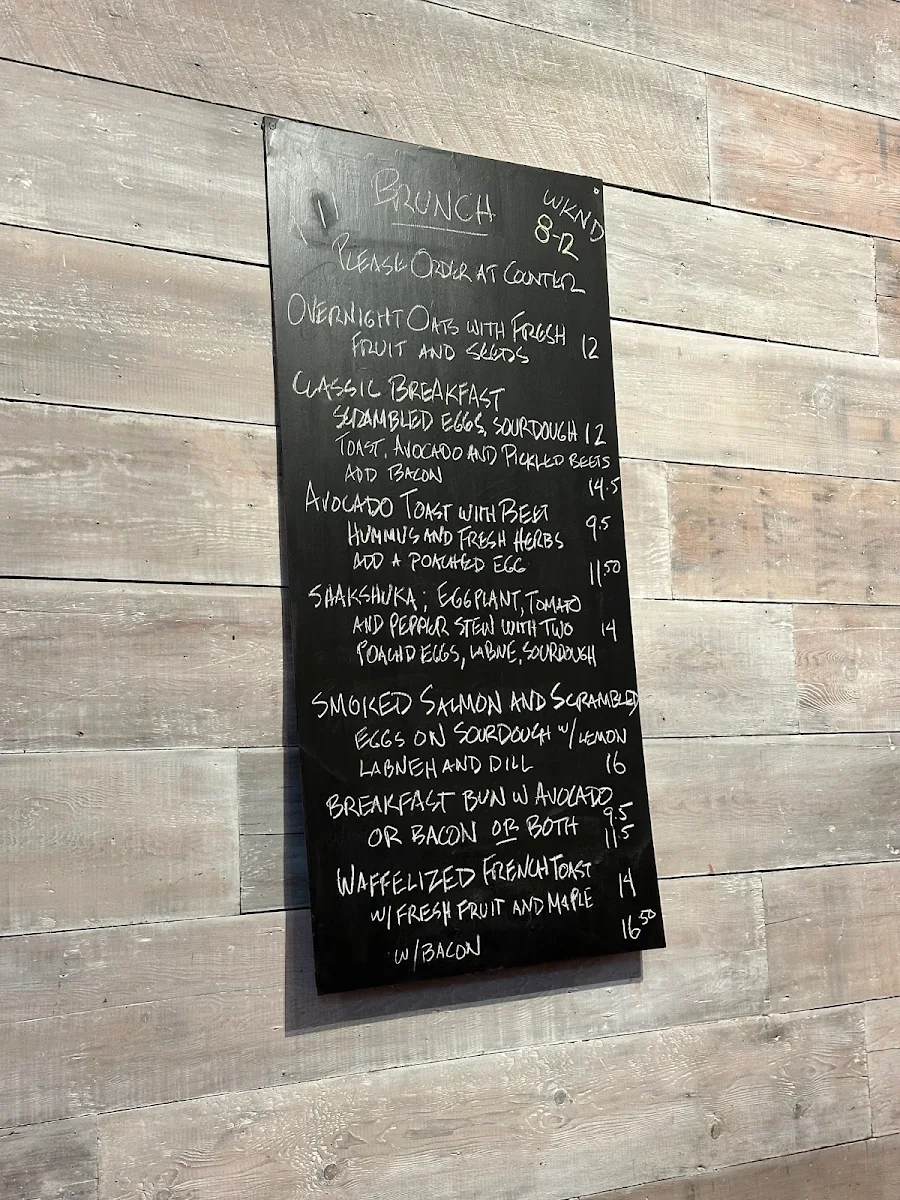 BRUNCH WKND
8-12
PLEASE ORDER AT COUNTER
OVERNIGHT OATS WITH FRESH
FRUIT AND SEEDS 12
CLASSIC BREAKFAST
SCRAMBLED EGGS, SOURDOUGH 12
TOAST, AVOCADO AND PICKLED BEETS
ADD BACON 14.5
AVOCADO TOAST WITH BEET
HUMMUS AND FRESH HERBS 9.5
ADD A POACHED EGG 11.50
SHAKSHUKA; EGGPLANT, TOMATO
AND PEPPER STEW WITH TWO 14
POACHD EGGS, LABNE, SOURDOUGH
SMOKED SALMON AND SCRAMBLED
EGGS ON SOURDOUGH W/ LEMON
LABNEH AND DILL 16
BREAKFAST BUN W AVOCADO
OR BACON OR BOTH 9.5
11.5
WAFFELIZED FRENCH TOAST 14
W/ FRESH FRUIT AND MAPLE
W/ BACON 16.50